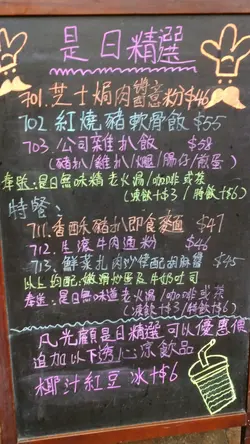 是日精選
701. 芝士焗肉醬意粉 $46
702. 紅燒豬軟骨飯 $55
703. 公司雜扒飯 $58
(豬扒/雞扒/煙腸仔/煎蛋)
奉送:是日無味精老火湯/咖啡或茶
(凍飲+$3/特飲+$6)
特餐:
711. 香酥豬扒即食麵 $47
712. 生滾牛肉通粉 $46
713. 鮮菜扎肉炒蛋配胡麻醬 $45
以上均配:嫩滑炒蛋及牛奶吐司
奉送:是日無味精老火湯/咖啡或茶
(凍飲+$3/特飲+$6)
凡光顧是日精選可以優惠價
追加以下透心涼飲品
椰汁紅豆冰+$6